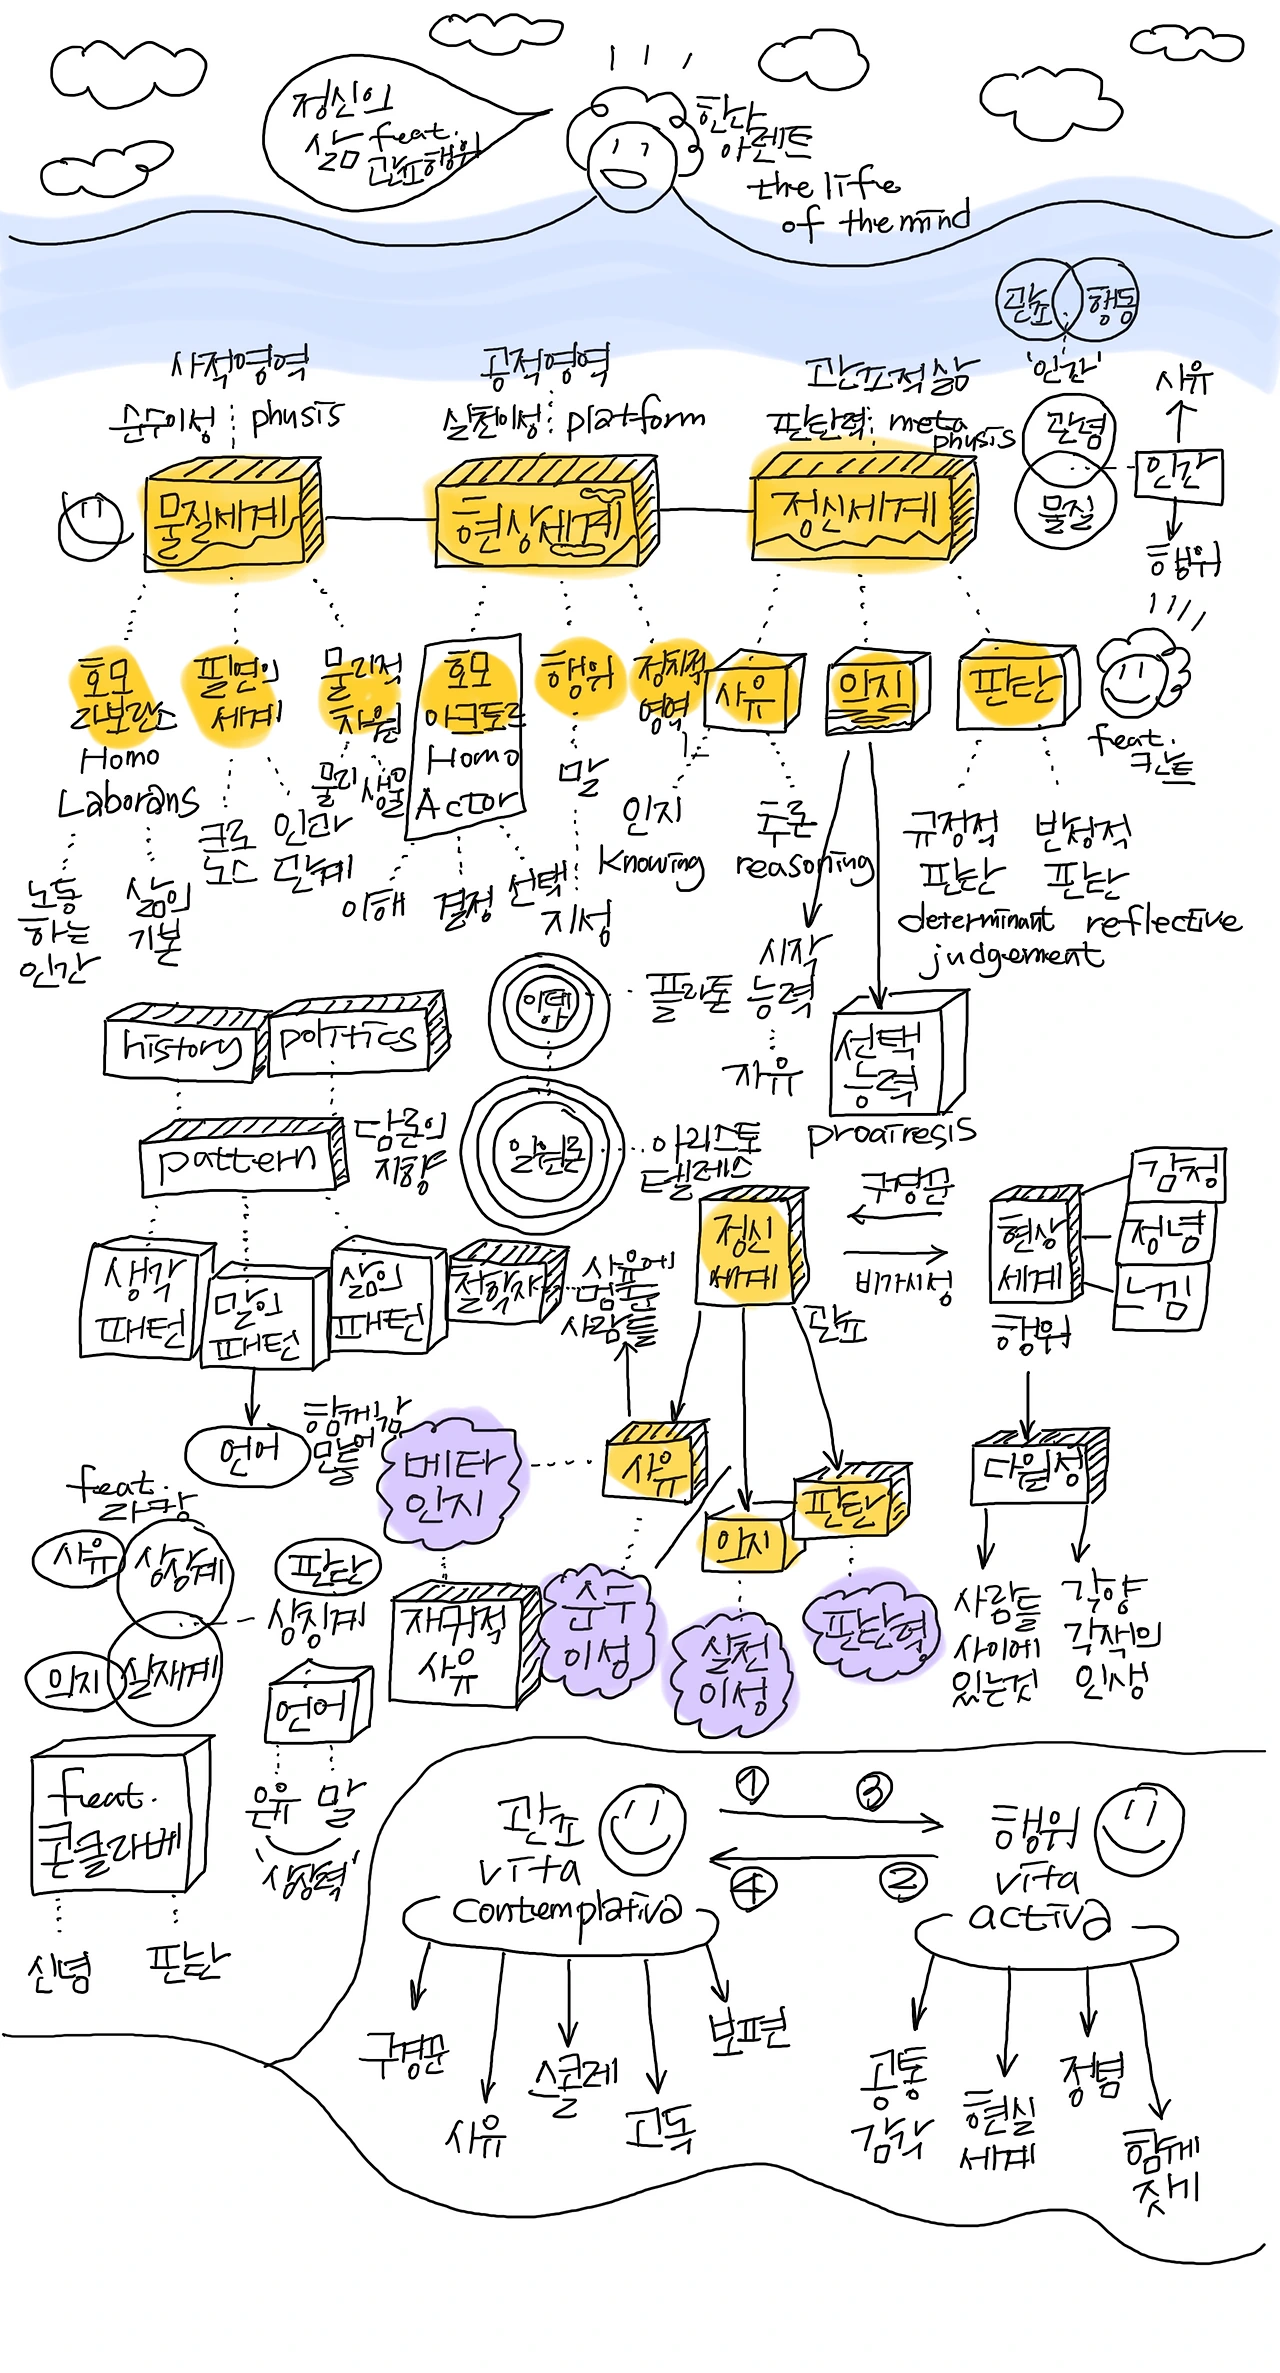 정신의
삶 feat.
관조행위
한나
아렌트
the life
of the mind
관조 행동
'인간'
사적영역
순수이성 : phusis
공적영역
실천이성 : platform
관조적삶
판단력 : meta
phusis
관념
물질
사유
인간
행위
물질세계
현상세계
정신세계
호모
라보란스
Homo
Laborans
노동
하는
인간
삶의
기본
필연의
세계
크로
노스
인과
관계
물리적
차원
물리 생물
호모
아크토르
Homo
Actor
이해
결정
선택
행위
말
지성
정치적
영역
사유
인지
Knowing
추론
reasoning
의지
시작
능력
자유
선택
능력
proairesis
판단
규정적
판단
determinant
judgement
반성적
판단
reflective
feat.
칸트
history
politics
pattern
담론의
지향
생각
패턴
말의
패턴
삶의
패턴
언어
이데아
플라톤
일원론
아리스토
텔레스
철학자
사유에
머문
사람들
정신
세계
관조
구경꾼
비가시성
현상
세계
행위
감정
정념
느낌
다원성
사람들
사이에
있는것
각양
각색의
인생
사유
의지
판단
메타
인지
재귀적
사유
순수
이성
실천
이성
판단력
feat.
라캉
사유
상상계
의지
실재계
판단
상징계
언어
은유 말
'상상력'
feat.
콘클라베
신념
판단
관조
vita
contemplativa
① ③
④ ②
행위
vita
activa
구경꾼
사유
스콜레
고독
보편
공통
감각
현실
세계
정념
함께
짓기